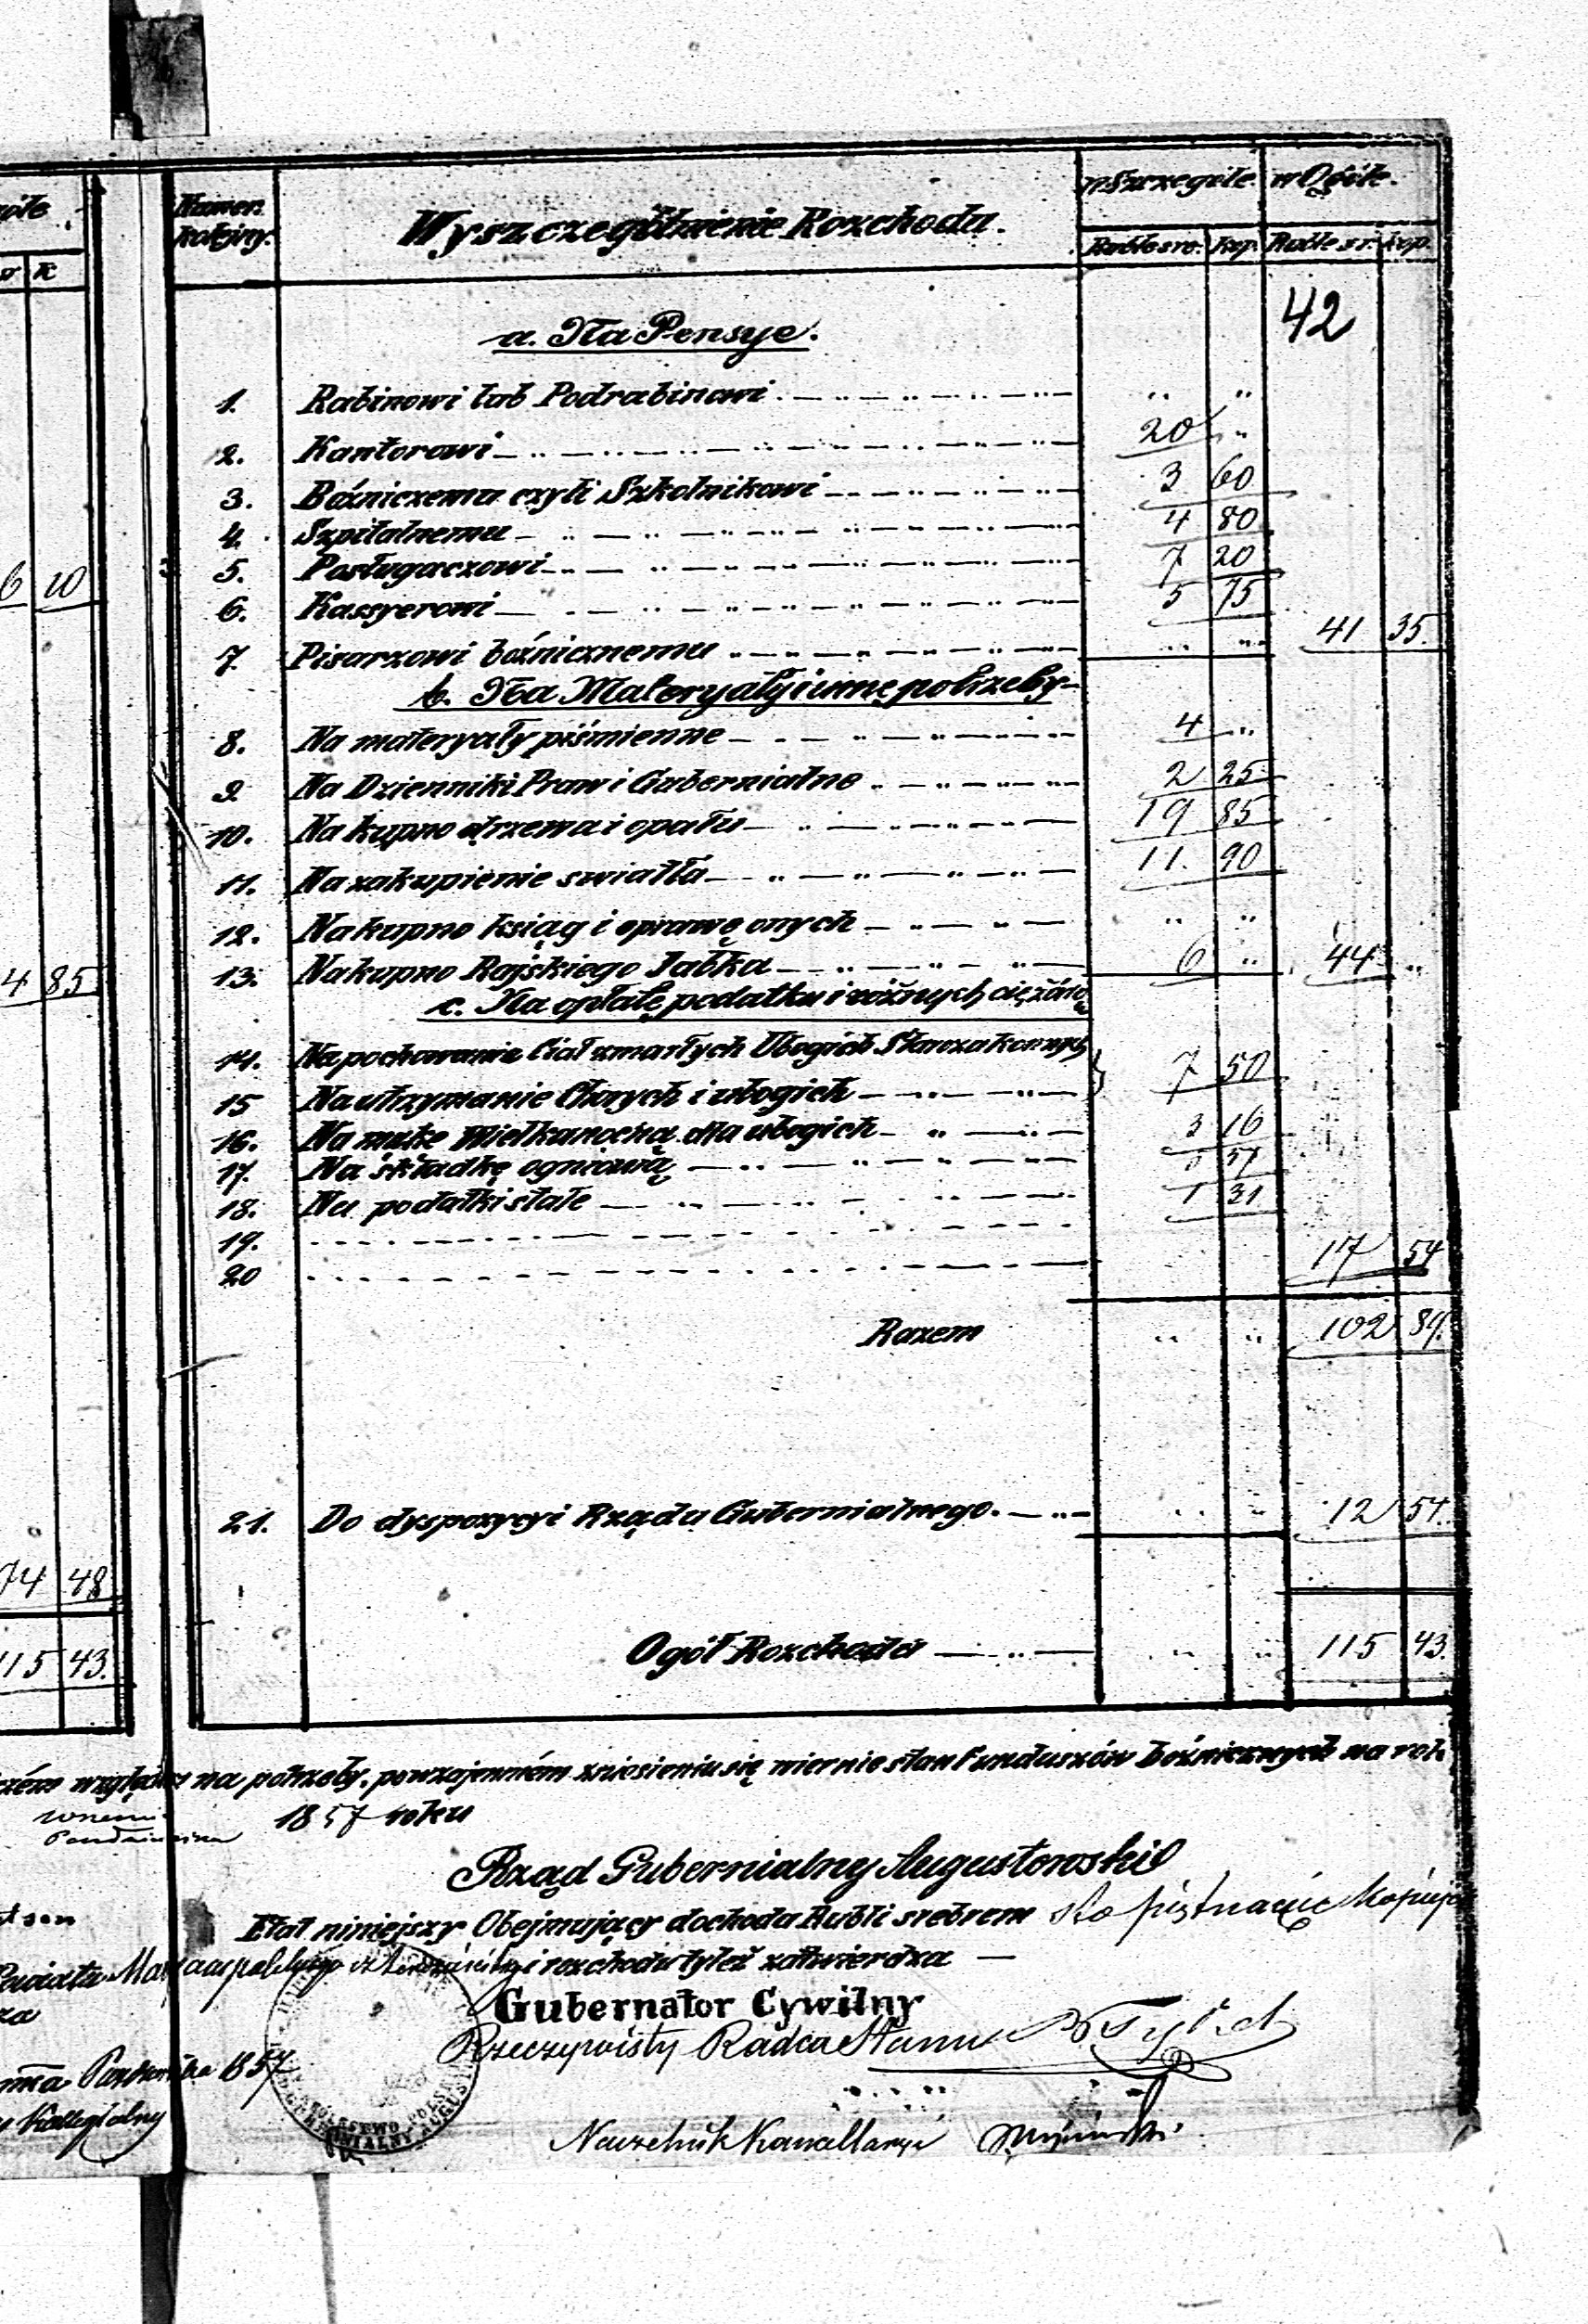 Numer kolejny. Wyszczególnienie Rozchodu. w Szczególe w Ogóle.
Ruble sre. Kop. Ruble sr. kop.
42
a. Na Pensye.
1. Rabinowi lub Podrabinowi
2. Kantorowi 20
3. Bóźniczemu czyli Szkolnikowi 3 60
4. Szpitalnemu 4 80
5. Posługaczowi 7 20
6. Kassyerowi 5 75
7. Pisarzowi bóźnicznemu 41 35.
b. Na Materyały i inne potrzeby
8. Na materyały piśmienne 4
9. Na Dzienniki Praw i Gubernialne 2 25
10. Na kupno drzewa i opału 19 85
11. Na zakupienie swiatła 11. 90
12. Na kupno ksiąg i oprawę onych
13. Na kupno Rajskiego Jabłka 6 44
c. Na opłatę podatku i różnych ciężarów
14. Na pochowanie Ciał zmarłych Ubogich Starozakonnych
15 Na utrzymanie Chorych i ubogich 7 50
16. Na mąkę Wielkanocną dla ubogich 3 16
17. Na składkę ogniową 5 57
18. Na podatki stałe 1 31
19.
20 17 54
Razem 102 89.
21. Do dyspozycyi Rządu Gubernialnego. 12 54.
Ogół Rozchodu 115 43.
6 10
4 85
74 48
115 43.
względu na potrzeby, po wzajemném zniesieniu się wiernie stan Funduszów bóźnicznych na rok
1857 roku
Rząd Gubernialny Augustowski
Etat niniejszy Obejmujący dochodu Rubli srebrem sto piętnaście Kopiejek
i rozchodu tyleż zatwierdza
Gubernator Cywilny
Rzeczywisty Radca Stanu
1857
Naczelnik Kancellaryi